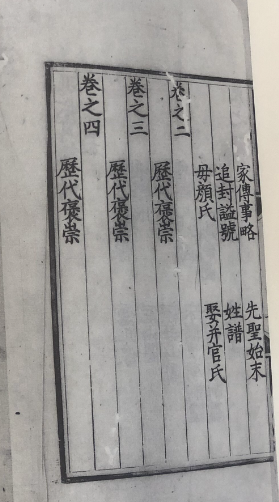 家傳事略 先聖始末
追封謚號 姓譜
母顏氏 娶并官氏
卷之二
歷代褒崇
卷之三
歷代褒崇
卷之四
歷代褒崇